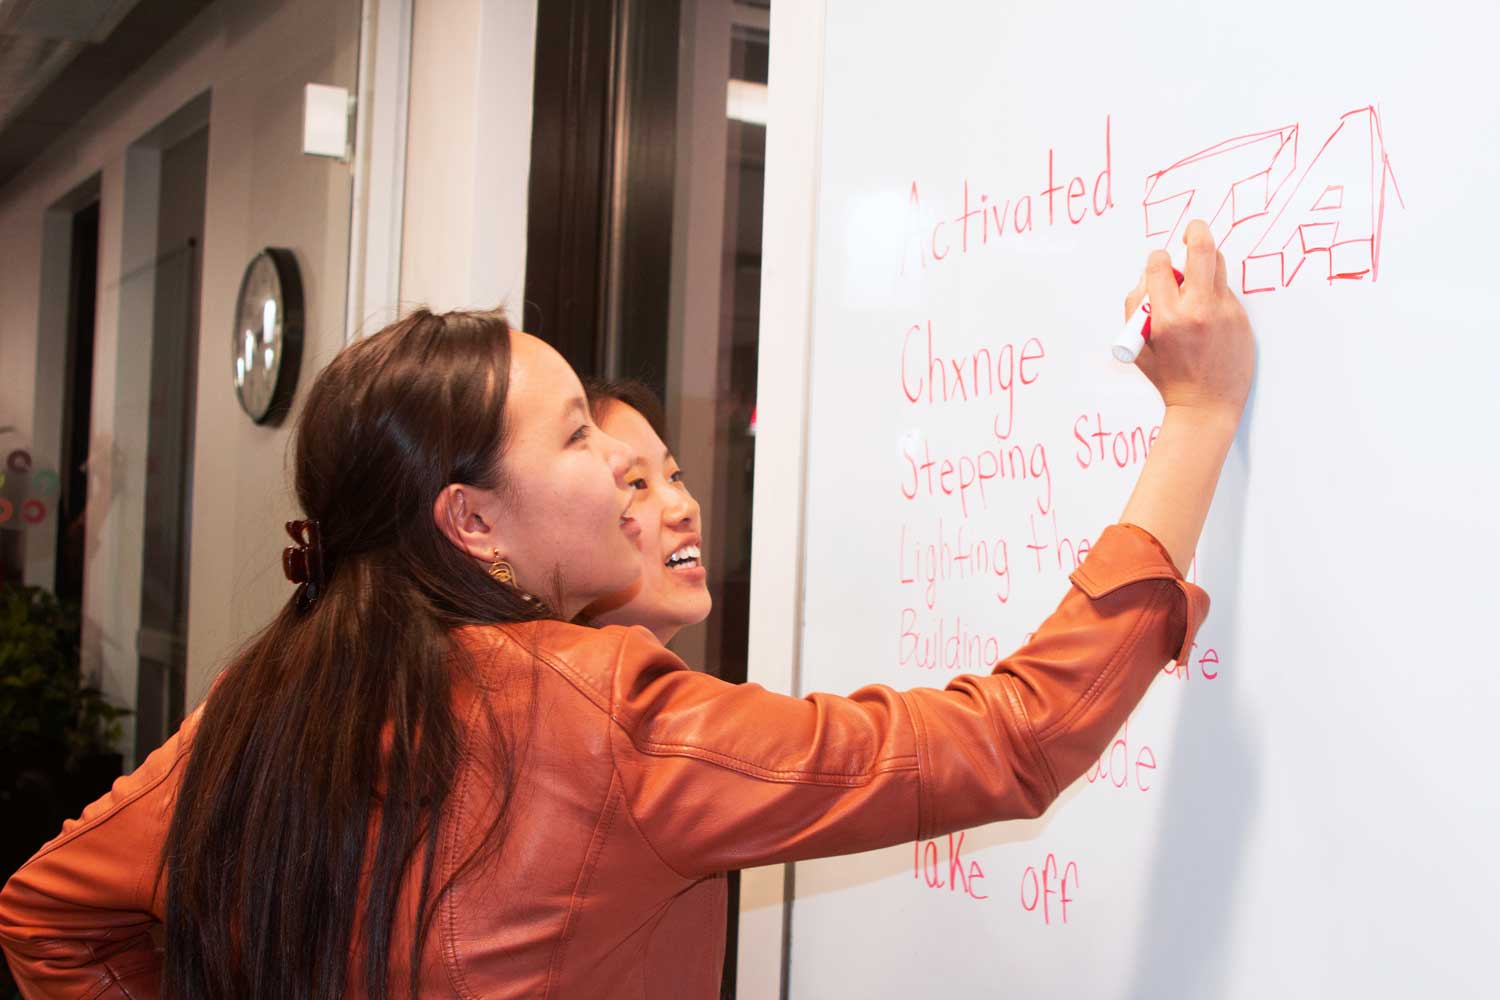 Activated TA
Chxnge
Stepping Stone
Lighting the
Building
Take off